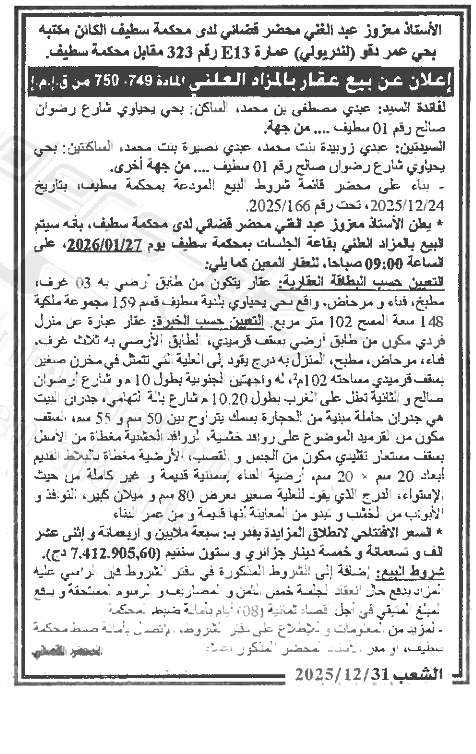 الأستاذ معزوز عبد الغني محضر قضائي لدى محكمة سطيف الكائن مكتبه
بحي عمر دقو (لندريولي) عمارة E13 رقم 323 مقابل محكمة سطيف.
إعلان عن بيع عقار بالمزاد العلني المادة 749، 750 من ق.إ.م.إ
لفائدة السيد: عبدي مصطفى بن محمد، الساكن: بحي يحياوي شارع رضوان
صالح رقم 01 سطيف .... من جهة.
السيدتين: عبدي زوبيدة بنت محمد، عبدي نصيرة بنت محمد، الساكنتين: بحي
يحياوي شارع رضوان صالح رقم 01 سطيف .... من جهة أخرى.
- بناء على محضر قائمة شروط البيع المودعة بمحكمة سطيف، بتاريخ
2025/12/24، تحت رقم 2025/166.
* يعلن الأستاذ معزوز عبد الغني محضر قضائي لدى محكمة سطيف، بأنه سيتم
البيع بالمزاد العلني بقاعة الجلسات بمحكمة سطيف يوم 2026/01/27، على
الساعة 09:00 صباحا، للعقار المعين كما يلي:
التعيين حسب البطاقة العقارية: عقار يتكون من طابق أرضي به 03 غرف،
مطبخ، فناء و مرحاض. واقع بحي يحياوي بلدية سطيف قسم 159 مجموعة ملكية
148 سعة المسح 102 متر مربع. التعيين حسب الخبرة: عقار عبارة عن منزل
فردي مكون من طابق أرضي بسقف قرميدي، الطابق الأرضي به ثلاث غرف،
فناء، مرحاض، مطبخ، المنزل به درج يقود إلى العلية التي تتمثل في مخزن صغير
بسقف قرميدي مساحته 102م²، له واجهتين الجنوبية بطول 10 م و شارع أرضوان
صالح و الثانية تطل على الغرب بطول 10.20 م شارع بالة التهامي، جدران البيت
هي جدران حاملة مبنية من الحجارة بسمك يتراوح بين 50 سم و 55 سم، السقف
مكون من القرميد الموضوع على روافد خشبية، الروافد الخشبية مغطاة من الأسفل
بسقف مستعار تقليدي مكون من الجبس و القصب، الأرضية مغطاة بالبلاط القديم
أبعاد 20 سم × 20 سم، أرضية الفناء إسمنتية قديمة و غير كاملة من حيث
الإستواء، الدرج الذي يقود للعلية صغير بعرض 80 سم و ميلان كبير، النوافذ و
الأبواب من الخشب و تبدو من المعاينة أنها قديمة و من عمر البناء
* السعر الافتتاحي لانطلاق المزايدة يقدر بـ: سبعة ملايين و اربعمائة و إثنى عشر
الف و تسعمائة و خمسة دينار جزائري و ستون سنتيم (7.412.905,60 دج).
شروط البيع: إضافة إلى الشروط المذكورة في دفتر الشروط فإن الراسي عليه
المزاد يدفع حال انعقاد الجلسة خمس الثمن و المصاريف و الرسوم المستحقة و يدفع
المبلغ المتبقي في أجل أقصاه ثمانية (08) أيام بأمانة ضبط المحكمة
- لمزيد من المعلومات و للإطلاع على دفتر الشروط، الإتصال بأمانة ضبط محكمة
سطيف، أو مقر الأستاذ المحضر المذكور أعلاه
المحضر القضائي
الشعب 2025/12/31